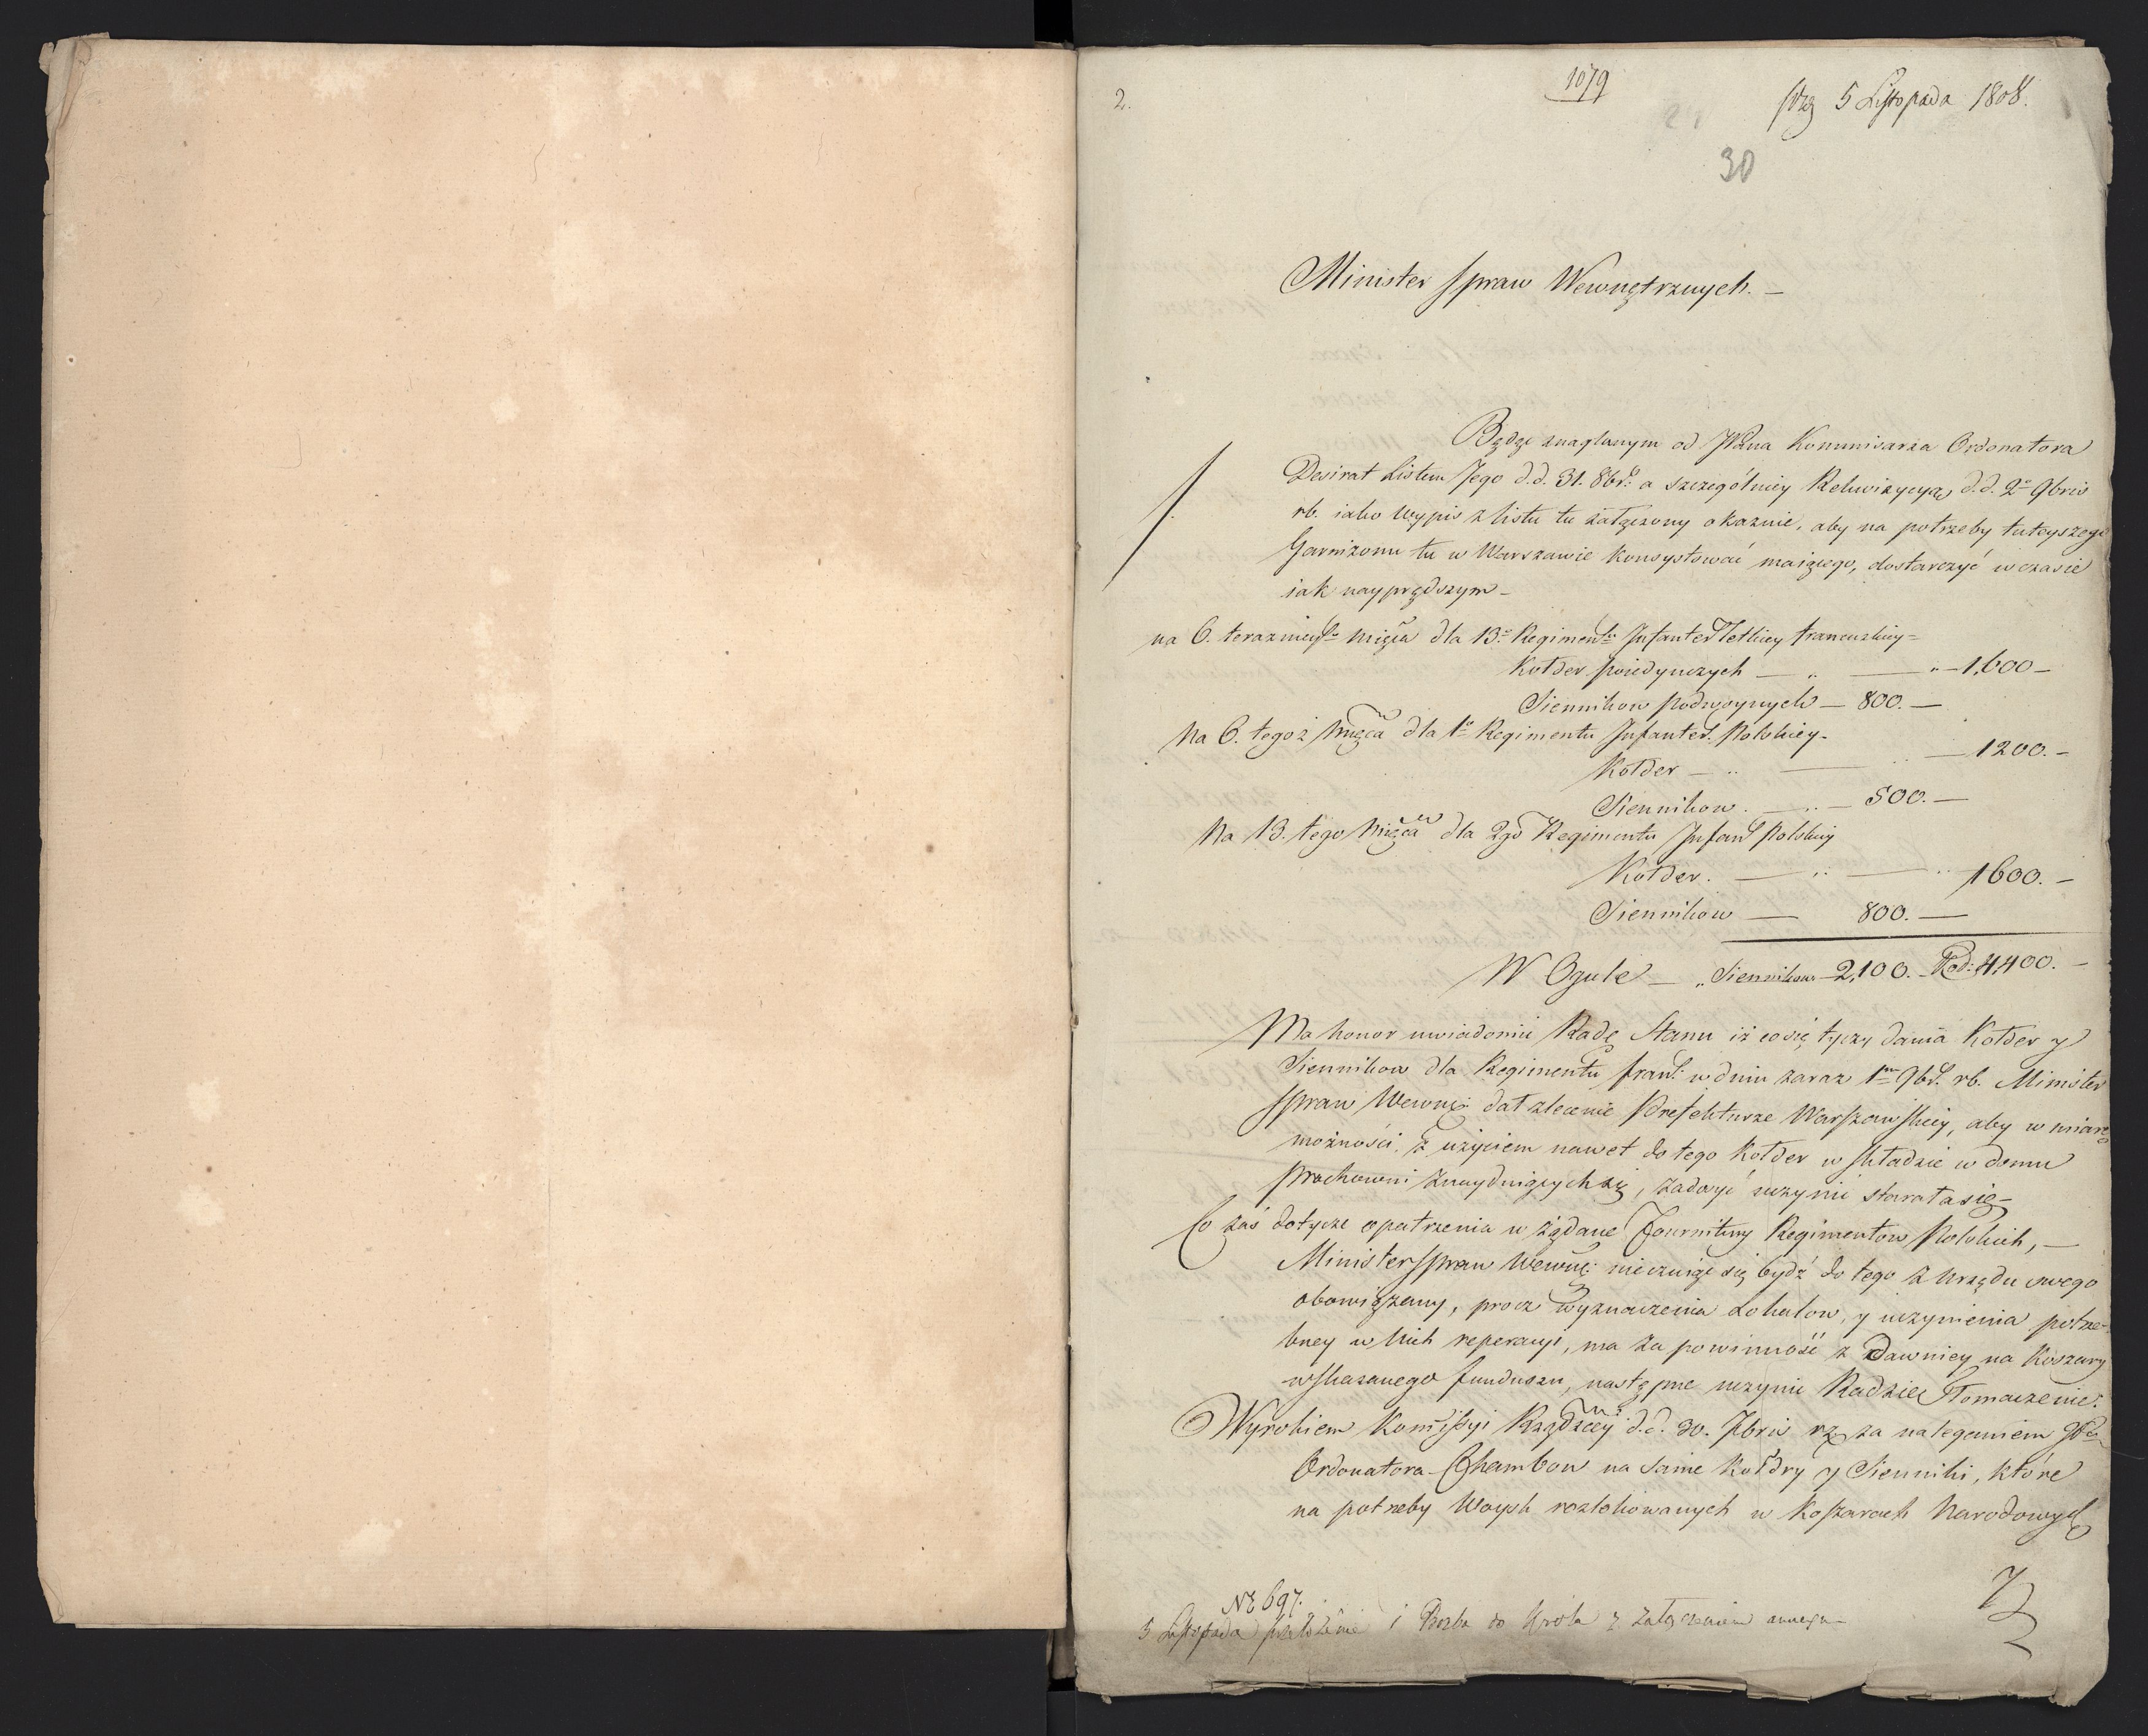 2.
1079
5 Listopada 1808.
30
Minister Spraw Wewnętrznych. —
Będąc znaglanym od JPana Kommisarza Ordonatora
Desirat Listem Jego d.d. 31. 8br: a szczególniey Rekwizycyą d.d. 2º 9bris
rb. iako wypis z listu tu załączony okazuie, aby na potrzeby tuteyszego
Garnizonu tu w Warszawie konsystować maiącego, dostarczyć w czasie
iak nayprędszym —
na 6. teraznieysº Mięca dla 13º Regimentu Infanter Letkiey francuskiey =
Kołder poiedynczych — „ — „ — 1,600 —
Siennikow podwoynych — 800. —
Na 6. tegoż Mięca dla 1º Regimentu Infanter. Polskiey —
Kołder — „ — „ — 1200. —
Siennikow. — „ — 500. —
Na 13. tego Mięca dla 2go Regimentu Infant Polskiy
Kołder. — „ — „ 1600. —
Siennikow — 800. —
W Ogule — „ Siennikow — 2,100. — Kod: 4,400. —
Ma honor uwiadomić Radę Stanu iż co się tyczy dania Kołder y
Siennikow dla Regimentu fran: w dniu zaraz 1m 9br. rb. Minister
Spraw Wewnę: dał zlecenie Prefekturze Warszawskiey, aby w miarę
możności, z użyciem nawet do tego Kołder w składzie w domu
Prochowni znayduiących się, zadosyć uczynić starała się —
Co zaś dotycze opatrzenia w żądane Fournitury Regimentow Polskich, —
Minister Spraw Wewnę: nie czuiąc się bydź do tego z urzędu swego
obowiązany, procz wyznaczenia Lokalow, y uczynienia potrze-
bney w nich reperacyi, ma za powinność z dawniey na Koszary
wskazanego funduszu, następne uczynić Radzie Tłomaczenie.
Wyrokiem Kommissyi Rządzcey d.d. 30. 7bris rz. za naleganiem
Ordonatora Chambon na same Kołdry y Sienniki, które
na potrzeby Woysk rozlokowanych w Koszarach Narodowych
No 697.
5 Listopada przełożenie i Prozba do Króla z załączeniem